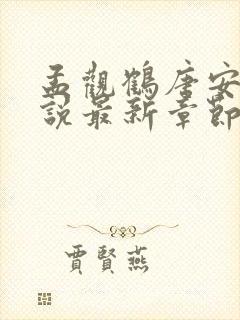 孟觀鶴唐安
說最新章節
賈賢燕